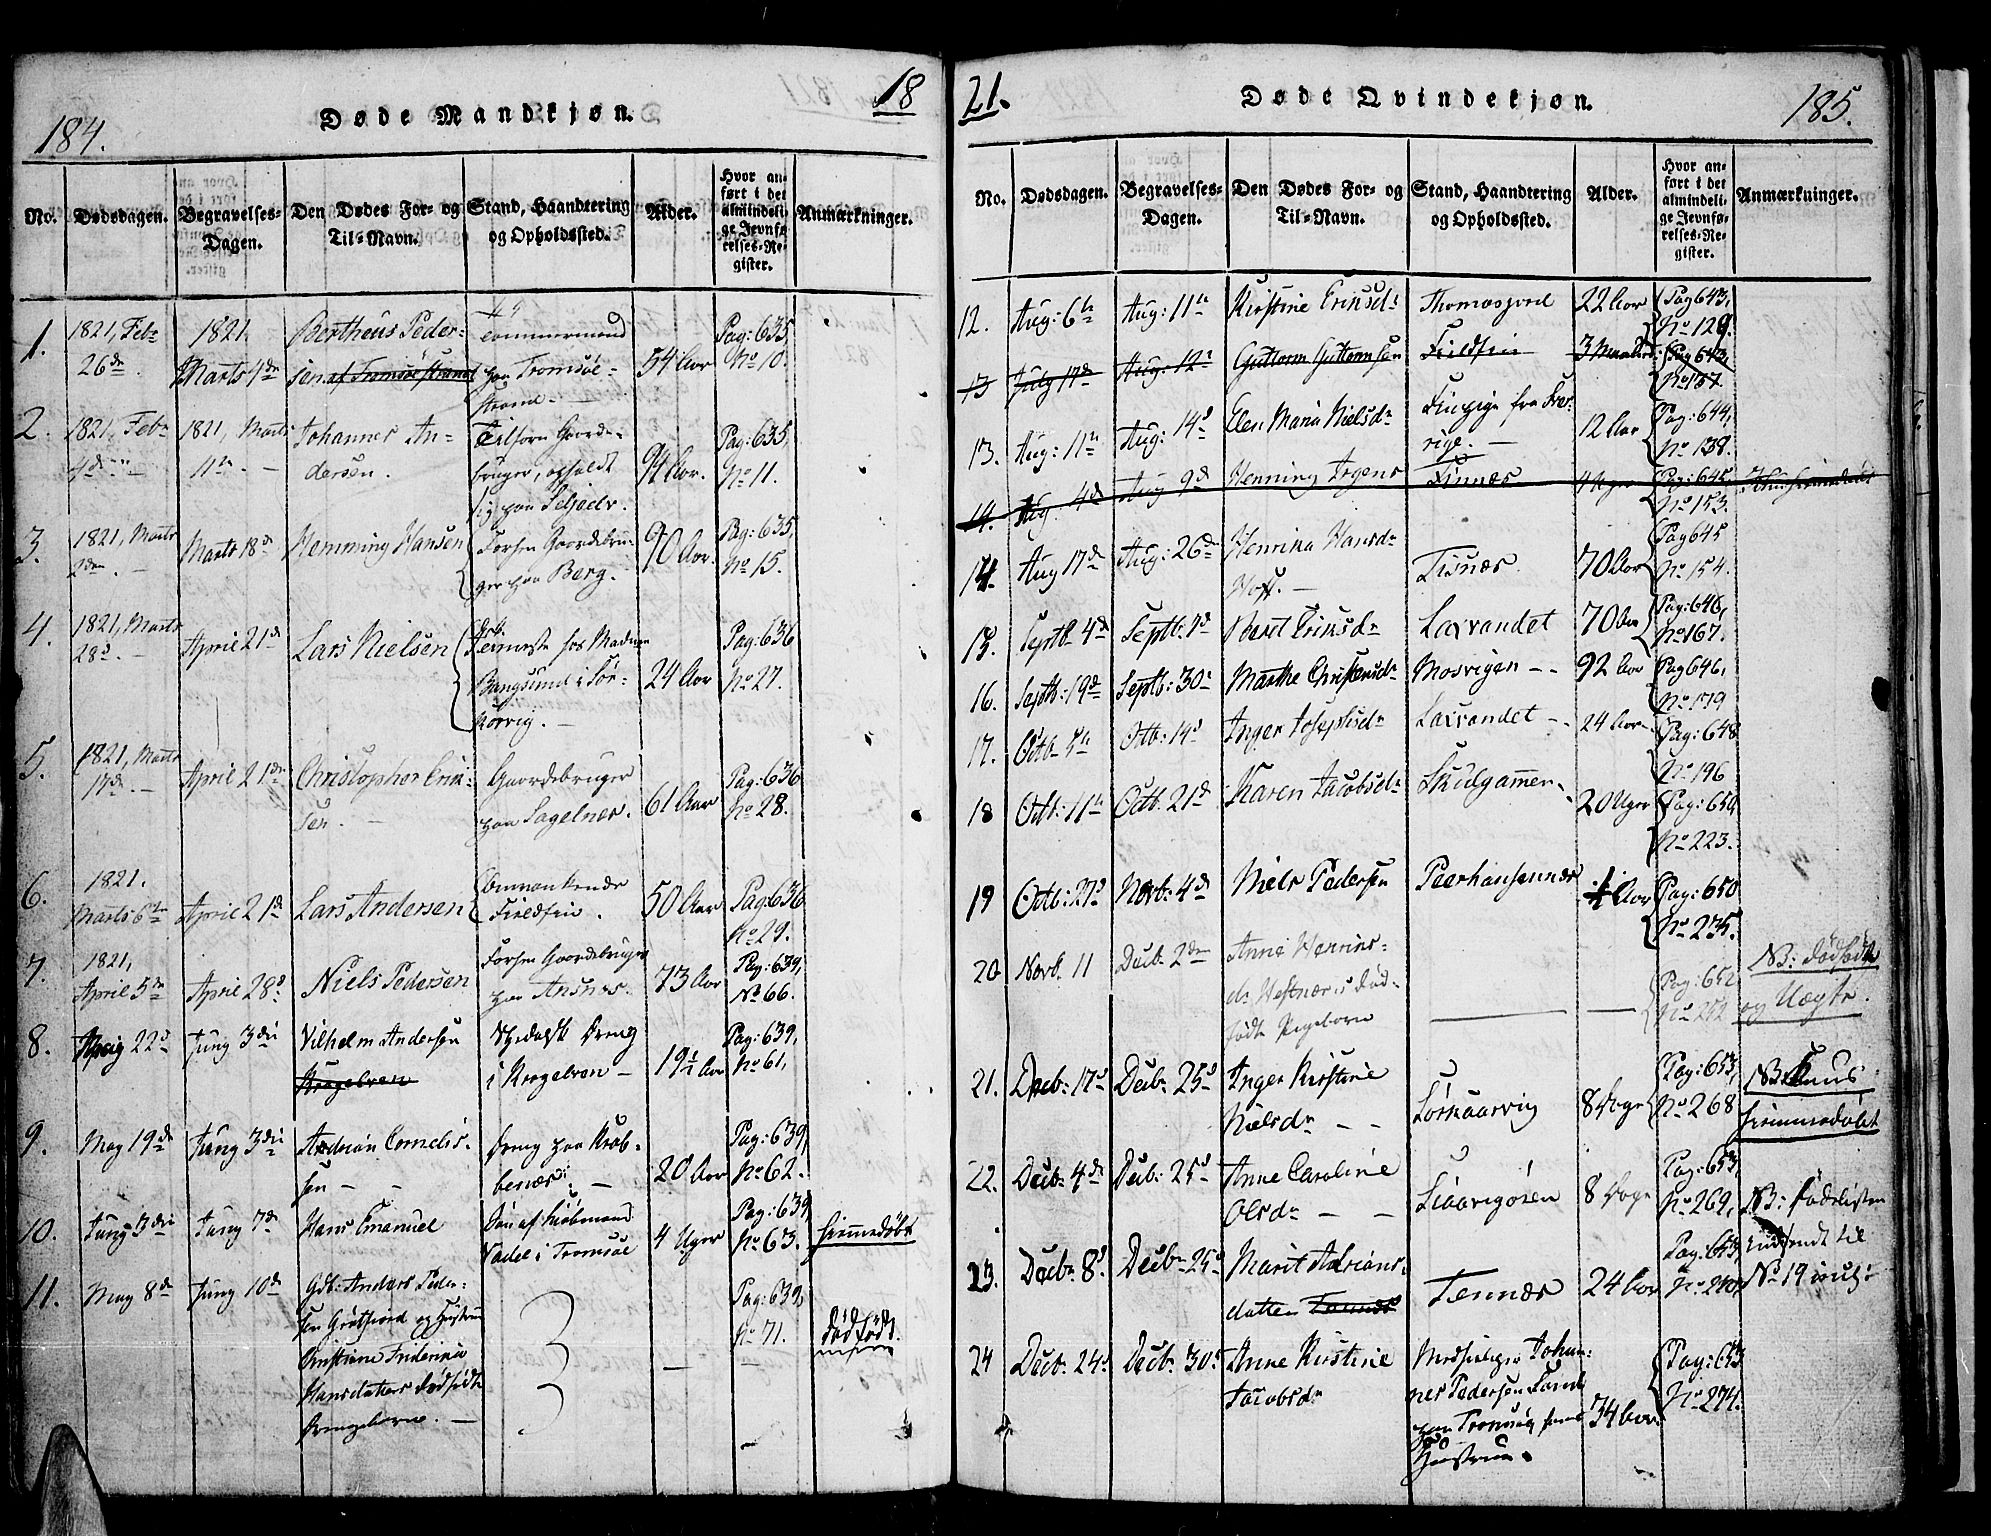 184.
Døde Mandkjøn.
18
No.
Dødsdagen.
Begravelses-Dagen.
Den Dødes For- og Til-Navn.
Stand, Haandtering og Opholdssted.
Alder.
Hvor anført i det almindelige Jevnførelses-Register.
Anmærkninger.
1. 1821, Febr 26de. 1821. Marts 4de Bertheus Pedersen af Tromsøe strand paa Tromsøestrand 54 Aar Pag: 635, No 10.
2. 1821, Febr 4de 1821, Marts 11te Johannes Andersen. Gaardbruger, opholdt sig paa Seljeelv. 94 Aar. Pag: 635, No 11.
3. 1821, Marts 2den. Marts 18de Hemming Hansen Gaardbruger paa Berg. 90 Aar. Pag: 635, No 15.
4. 1821, Marts 28d. April 21de Lars Nielsen Tieneste hos Madame Bangsund i Sør-Korvig. 24 Aar Pag: 636 No 27.
5. 1821, Marts 17de. April 21de Christopher Erik-sen. Gaardbruger paa Sagelnes. 61 Aar Pag: 636 No 28.
6. 1821. Marts 6te April 21de Lars Andersen Omvankende Fieldfin. 50 Aar Pag: 636 No 29.
7. 1821, April 5te April 28d Niels Pedersen Gaardbruger paa Ansnes. 73 Aar Pag: 639, No 66.
8. 22d Juny 3die Vilhelm Andersen Krogelven Dreng i Krogelven 19½ Aar Pag: 639, No 61,
9. May 19de Juny 3die Adrian Cornelis-sen Dreng paa Krab-benæs. 20 Aar Pag: 639, No 62.
10. Juny 3die Juny 7de Hans Emanuel Søn af Kiøbmand Vadel i Tromsøe 4 Uger Pag: 639, No 63. hiemmedøbt
11. May 8de Juny 10de Gdb: Anders Peder-sen Grøtfiord og Hustru Cristiane Friderica Hansdatters dødfødte Drengebarn. Pag: 639, No 71. dødfødt.
21.
Døde Qvindekjøn.
185.
No.
Dødsdagen.
Begravelses-Dagen.
Den Dødes For- og Til-Navn.
Stand, Haandtering og Opholdssted.
Alder.
Hvor anført i det almindelige Jevnførelses-Register.
Anmærkninger.
12. Aug: 6te Aug: 11te Kirstine Eriksdr Thomasjord 22 Aar Pag 643, No 129.
13 July 17de Aug: 12te Guttorm Guttormsen Fieldfin 3 Maaneder Pag 643, No 137.
13. Aug: 11te Aug: 14d Elen Maria Nielsdr Finpige fra Sve-rige. 12 Aar Pag: 644, No 138.
14. Aug. 4de Aug 9de Henning Irgens Finnæs 4 Uger Pag: 645, No 153.
14. Aug 17de Aug: 26de Henrika Hansdr Hoff. Tisnæs 70 Aar Pag 645 No 154.
15. Septb. 4de Septb: Beret Eriksdr Laxvandet 70 Aar Pag: 646, No 167.
16. Septb: 19de Septb: 30te Marthe Christensdr Mosvigen 92 Aar Pag 646, No 179
17. Octb. 5te Octb: 14d Inger Josephsdr Laxvandet 24 Aar Pag: 648 No 196
18 Octb: 11te Octb: 21de Karen Jacobsdr Skulgammen 20 Uger Pag: 650, No 223.
19 Octb: 27d Novb: 4de Niels Pedersen Peerhansennæs ½ Aar Pag: 650 No 235.
20 Novb. 11 Decb. 2den Anne Henriks-dr Vestnæs's død-fødte Pigebarn Pag: 652 No 252 NB: dødfødt og Uægte.
21. Decb: 17d Decb. 25d Inger Kirstine Nielsdr Sørkaarvig 8 Dage Pag: 653, No 268 NB: huus hiemmedøbt
22. Decb. 4de Decb: 25d Anne Caroline Olsdr Skaarvigøsen 8 Dage Pag: 653, No 269, NB: Fødelisten indsendt til No 19 incl:
23. Decb: 8d Decb: 25d Marit Adrians-datter Tennes Tennæs 24 Aar Pag: 653, No 270,
24 Decb: 24d Decb. 30te Anne Kirstine Jacobsdr Johan-nes Pedersen paa Tromsøe Hustrue. 34 Aar. Pag: 653 No 274.